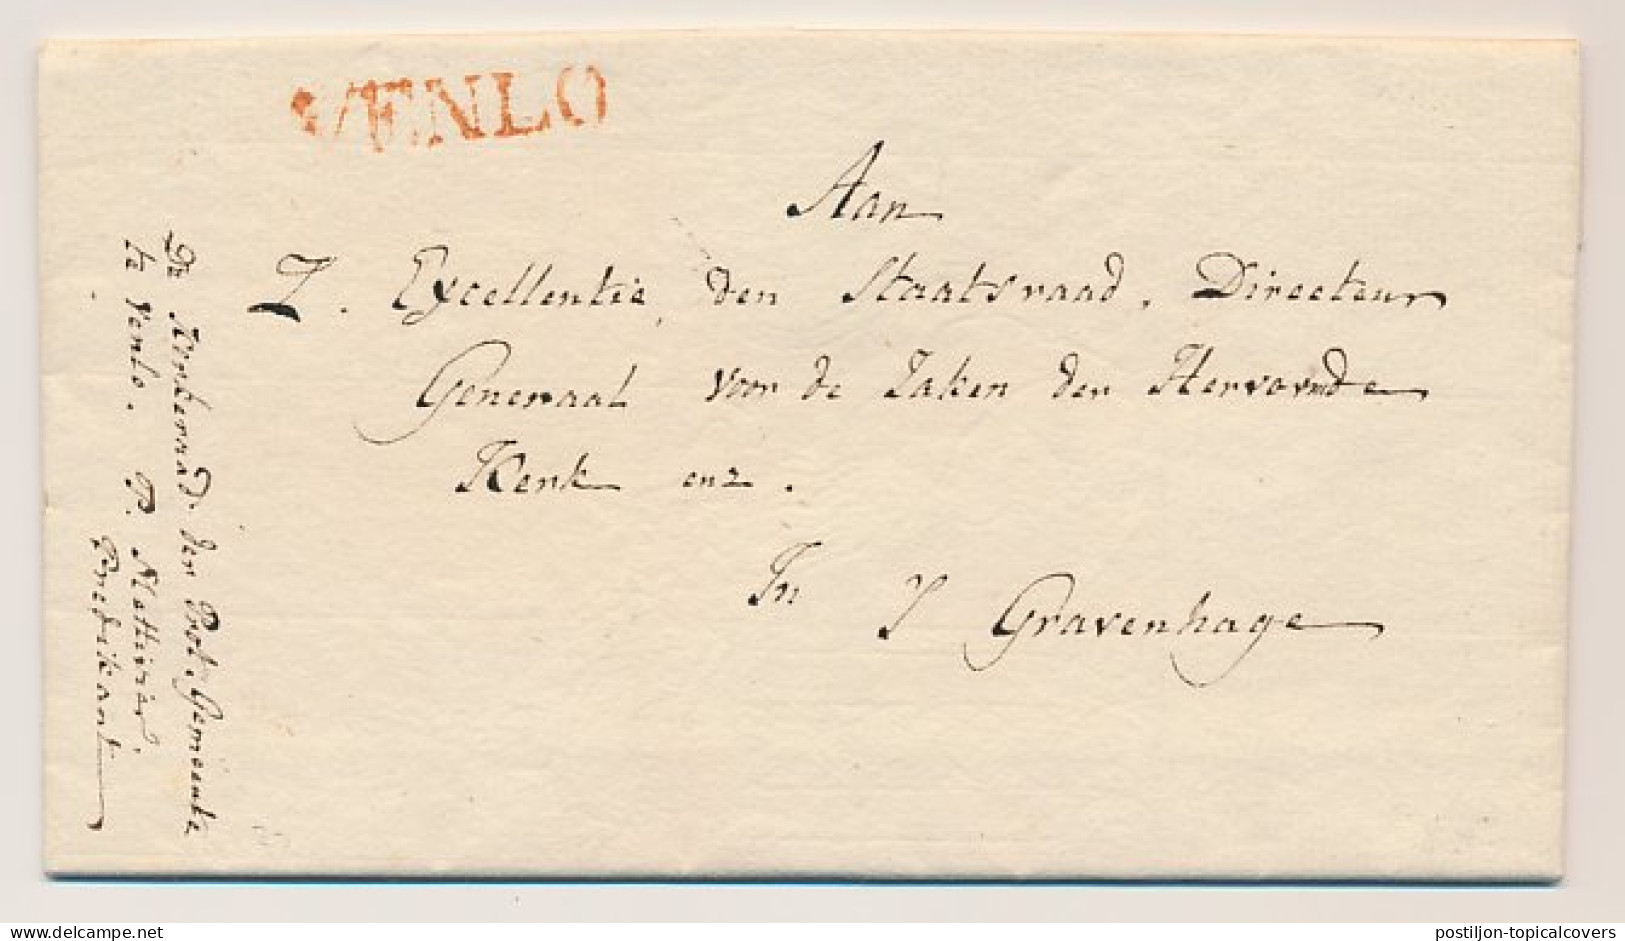 VENLO
Aan
Z. Excellentie, den Staatsraad, Directeur
Generaal voor de Zaken der Hervormde
Kerk enz.
In 's Gravenhage
De Kerkeraad der Prot. Gemeente
te Venlo. P.
Predikant
www.delcampe.net
postiljon-topicalcovers